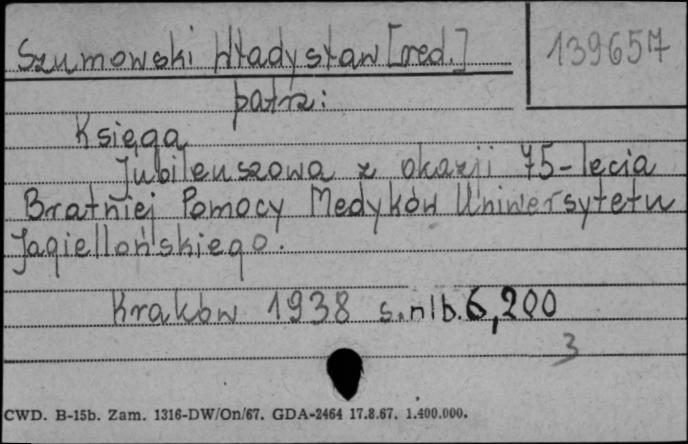 Szumowski Władysław [red.]
139657
patrz:
Księga
Jubileuszowa z okazji 75-lecia
Bratniej Pomocy Medyków Uniwersytetu
Jagiellońskiego.
Kraków 1938 s.nlb.6,200
3
CWD. B-15b. Zam. 1316-DW/On/67. GDA-2464 17.8.67. 1.400.000.